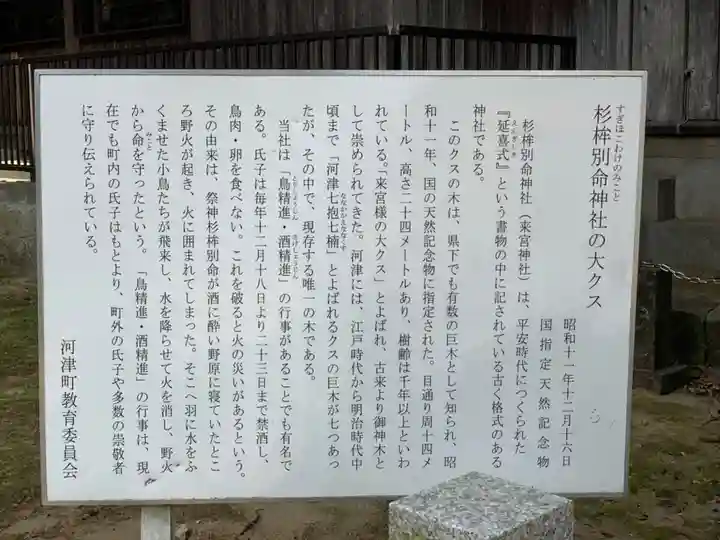 すぎほこわけのみこと
杉桙別命神社の大クス
昭和十一年十二月十六日
国指定天然記念物
杉桙別命神社(来宮神社)は、平安時代につくられた
えんぎしき
『延喜式』という書物の中に記されている古く格式のある
神社である。
このクスの木は、県下でも有数の巨木として知られ、昭
和十一年、国の天然記念物に指定された。目通り周十四メ
ートル、高さ二十四メートルあり、樹齢は千年以上といわ
れている。「来宮様の大クス」とよばれ、古来より御神木と
して崇められてきた。河津には、江戸時代から明治時代中
ななかかえななくす
頃まで「河津七抱七楠」とよばれるクスの巨木が七つあっ
たが、その中で、現存する唯一の木である。
とりしょうじん さけしょうじん
当社は「鳥精進・酒精進」の行事があることでも有名で
ある。氏子は毎年十二月十八日より二十三日まで禁酒し、
鳥肉・卵を食べない。これを破ると火の災いがあるという。
その由来は、祭神杉桙別命が酒に酔い野原に寝ていたとこ
ろ野火が起き、火に囲まれてしまった。そこへ羽に水をふ
くませた小鳥たちが飛来し、水を降らせて火を消し、野火
みこと
から命を守ったという。「鳥精進・酒精進」の行事は、現
在でも町内の氏子はもとより、町外の氏子や多数の崇敬者
に守り伝えられている。
河津町教育委員会